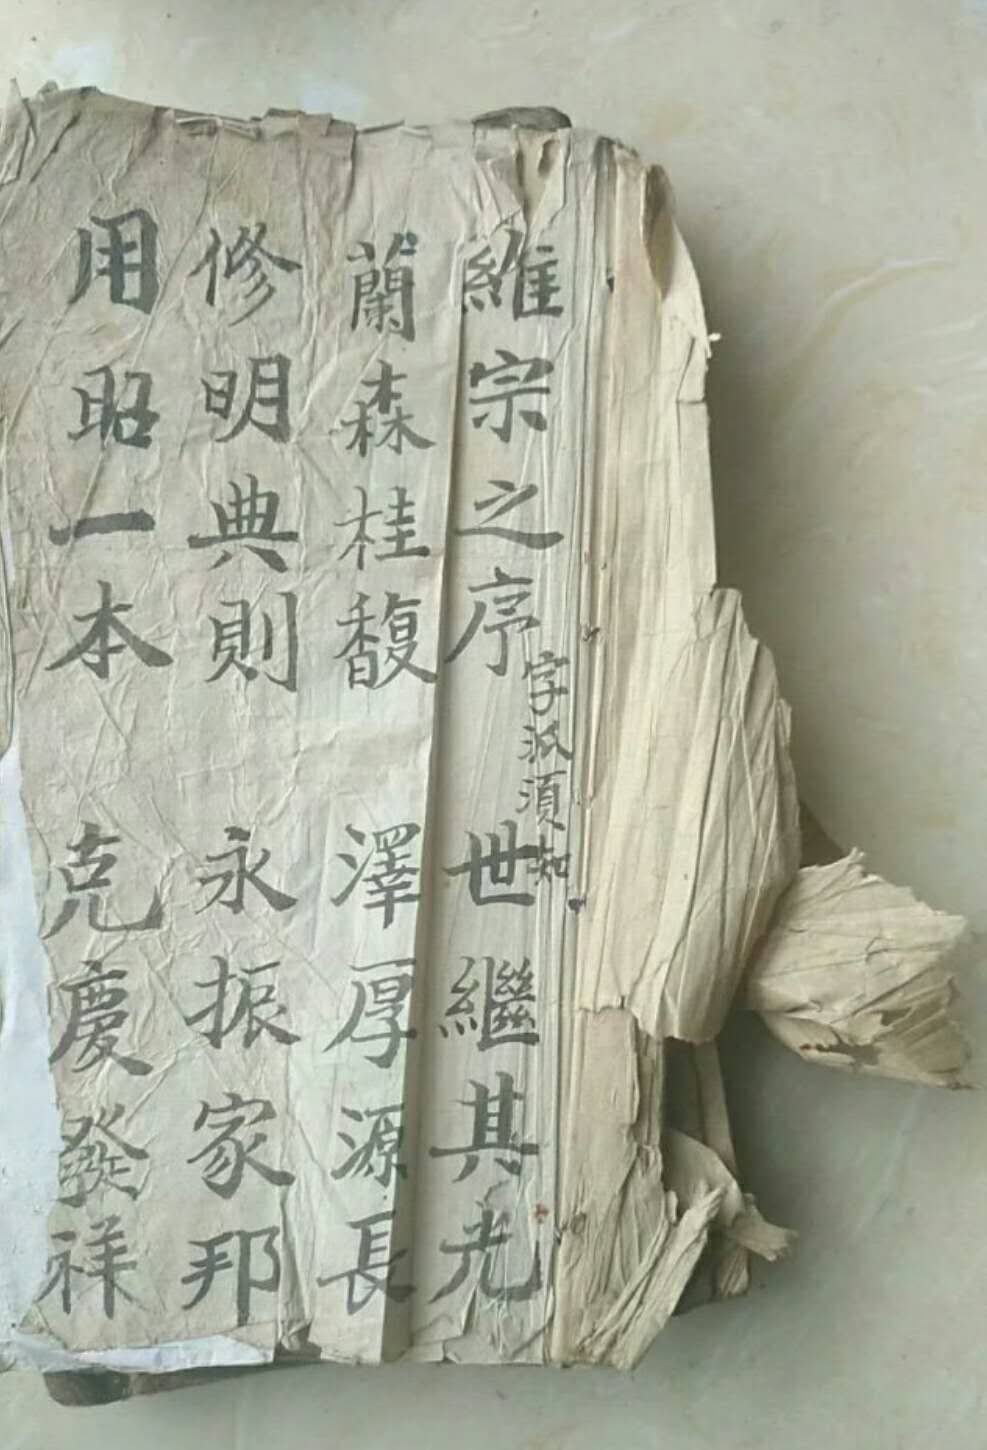 字派須知
維宗之序 世繼其光
蘭森桂馥 澤厚源長
修明典則 永振家邦
用昭一本 克慶發祥